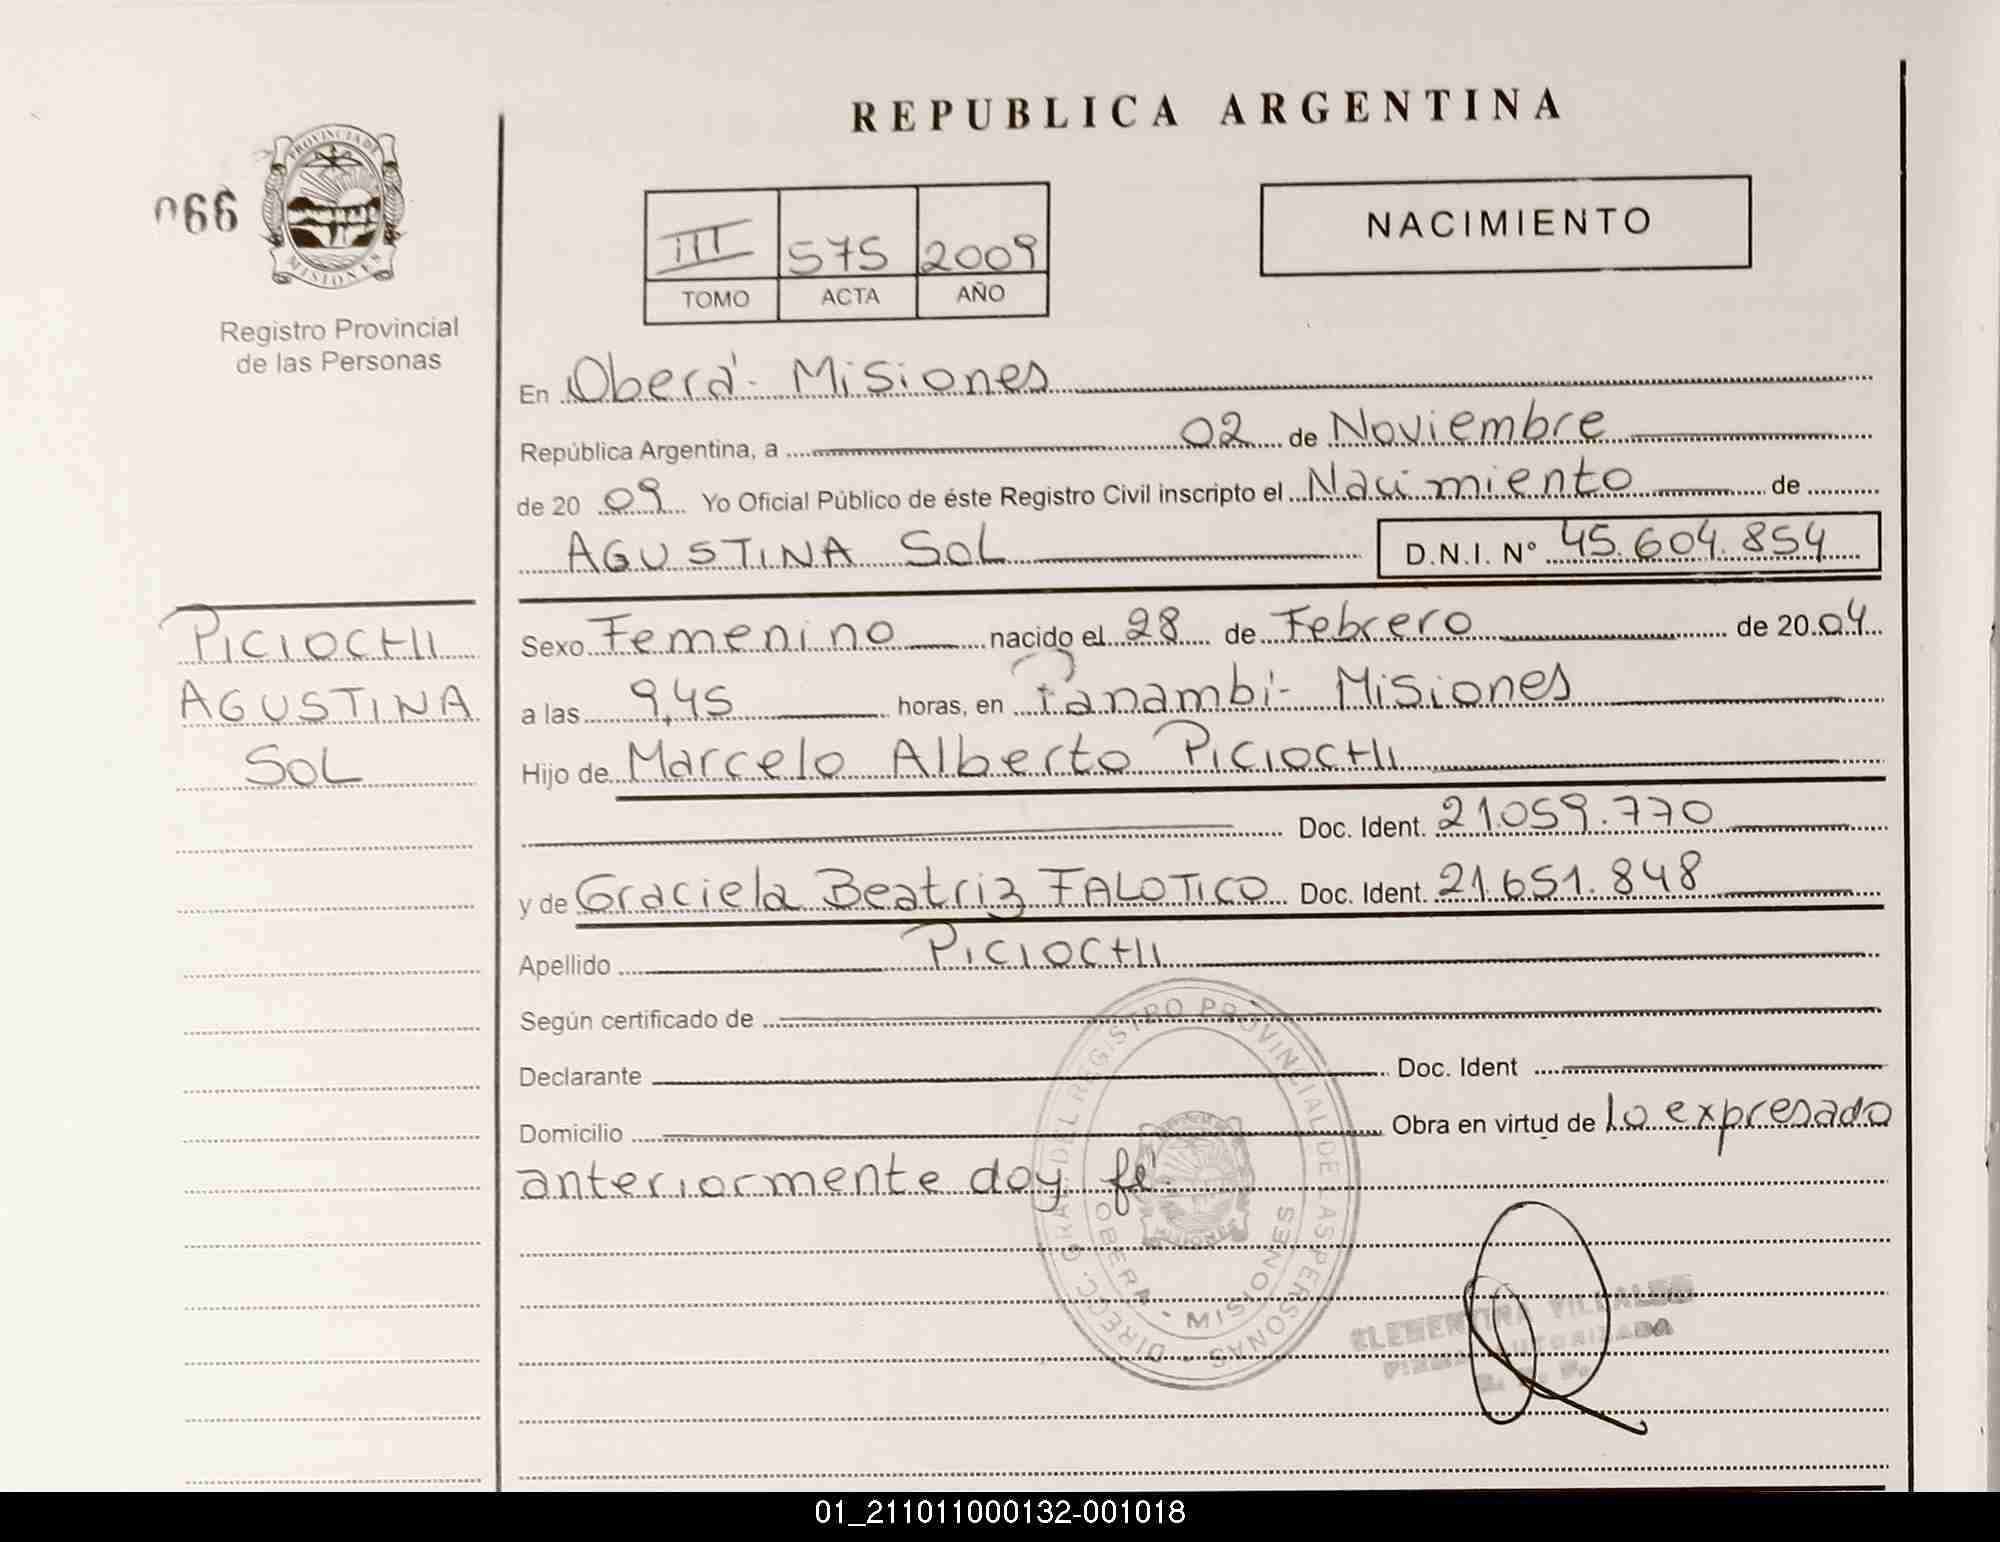 REPUBLICA ARGENTINA
066
PROVINCIA DE
MISIONES
Registro Provincial
de las Personas
III 575 2009
TOMO ACTA AÑO
NACIMIENTO
En Oberá - Misiones
República Argentina, a 02 de Noviembre
de 20 09 Yo Oficial Público de éste Registro Civil inscripto el Nacimiento de
AGUSTINA SOL D.N.I. N° 45.604.854
PICIOCHI
AGUSTINA
SOL
Sexo Femenino nacido el 28 de Febrero de 20 04
a las 9,45 horas, en Panambí - Misiones
Hijo de Marcelo Alberto PICIOCHI
Doc. Ident. 21.059.770
y de Graciela Beatriz FALOTICO Doc. Ident. 21.651.848
Apellido PICIOCHI
Según certificado de
Declarante Doc. Ident
Domicilio Obra en virtud de lo expresado
anteriormente doy fé.
DIRECC. GRAL. DEL REGISTRO PROVINCIAL DE LAS PERSONAS
OBERA - MISIONES
CLEMENTINA VILLALBA
FIRMA AUTORIZADA
01_211011000132-001018